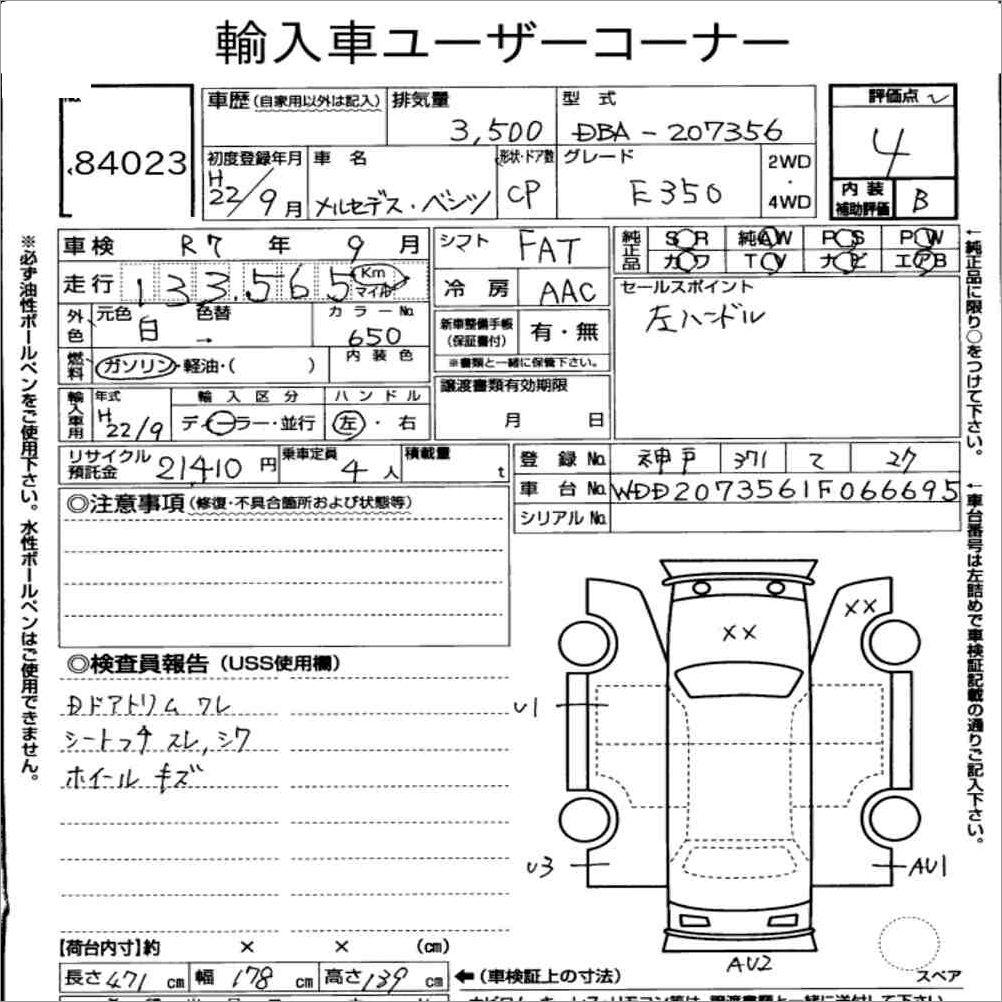 輸入車ユーザーコーナー
84023
車歴(自家用以外は記入) 排気量 3,500 型式 DBA-207356
評価点 4
初度登録年月 H22/9月 車名 メルセデス・ベンツ 形状・ドア数 CP グレード E350 2WD・4WD
内装補助評価 B
車検 R7年9月 シフト FAT 純正品 SR 純AW PS PW
走行 133,565 Km マイル 冷房 AAC カワ TV ナビ エアB
外色 元色 白 色替 → カラーNo. 650 新車整備手帳(保証書付) 有・無 セールスポイント
左ハンドル
燃料 ガソリン・軽油・( ) 内装色 ※書類と一緒に保管下さい。
輸入車用 年式 H22/9 輸入区分 ディーラー・並行 ハンドル 左・右 譲渡書類有効期限 月 日
リサイクル預託金 21410円 乗車定員 4人 積載量 t 登録No. 神戸 371 て 27
車台No. WDD2073561F066695
シリアルNo.
◎注意事項(修復・不具合箇所および状態等)
◎検査員報告(USS使用欄)
Dドアトリム ワレ
シート スレ,シワ
ホイール キズ
XX XX
U1
U3 AU1
AU2
スペア
【荷台内寸】約 × × (cm)
長さ471cm 幅178cm 高さ139cm ←(車検証上の寸法)
※必ず油性ボールペンをご使用下さい。水性ボールペンはご使用できません。
←純正品に限り○をつけて下さい。
←車台番号は左詰めで車検証記載の通りご記入下さい。